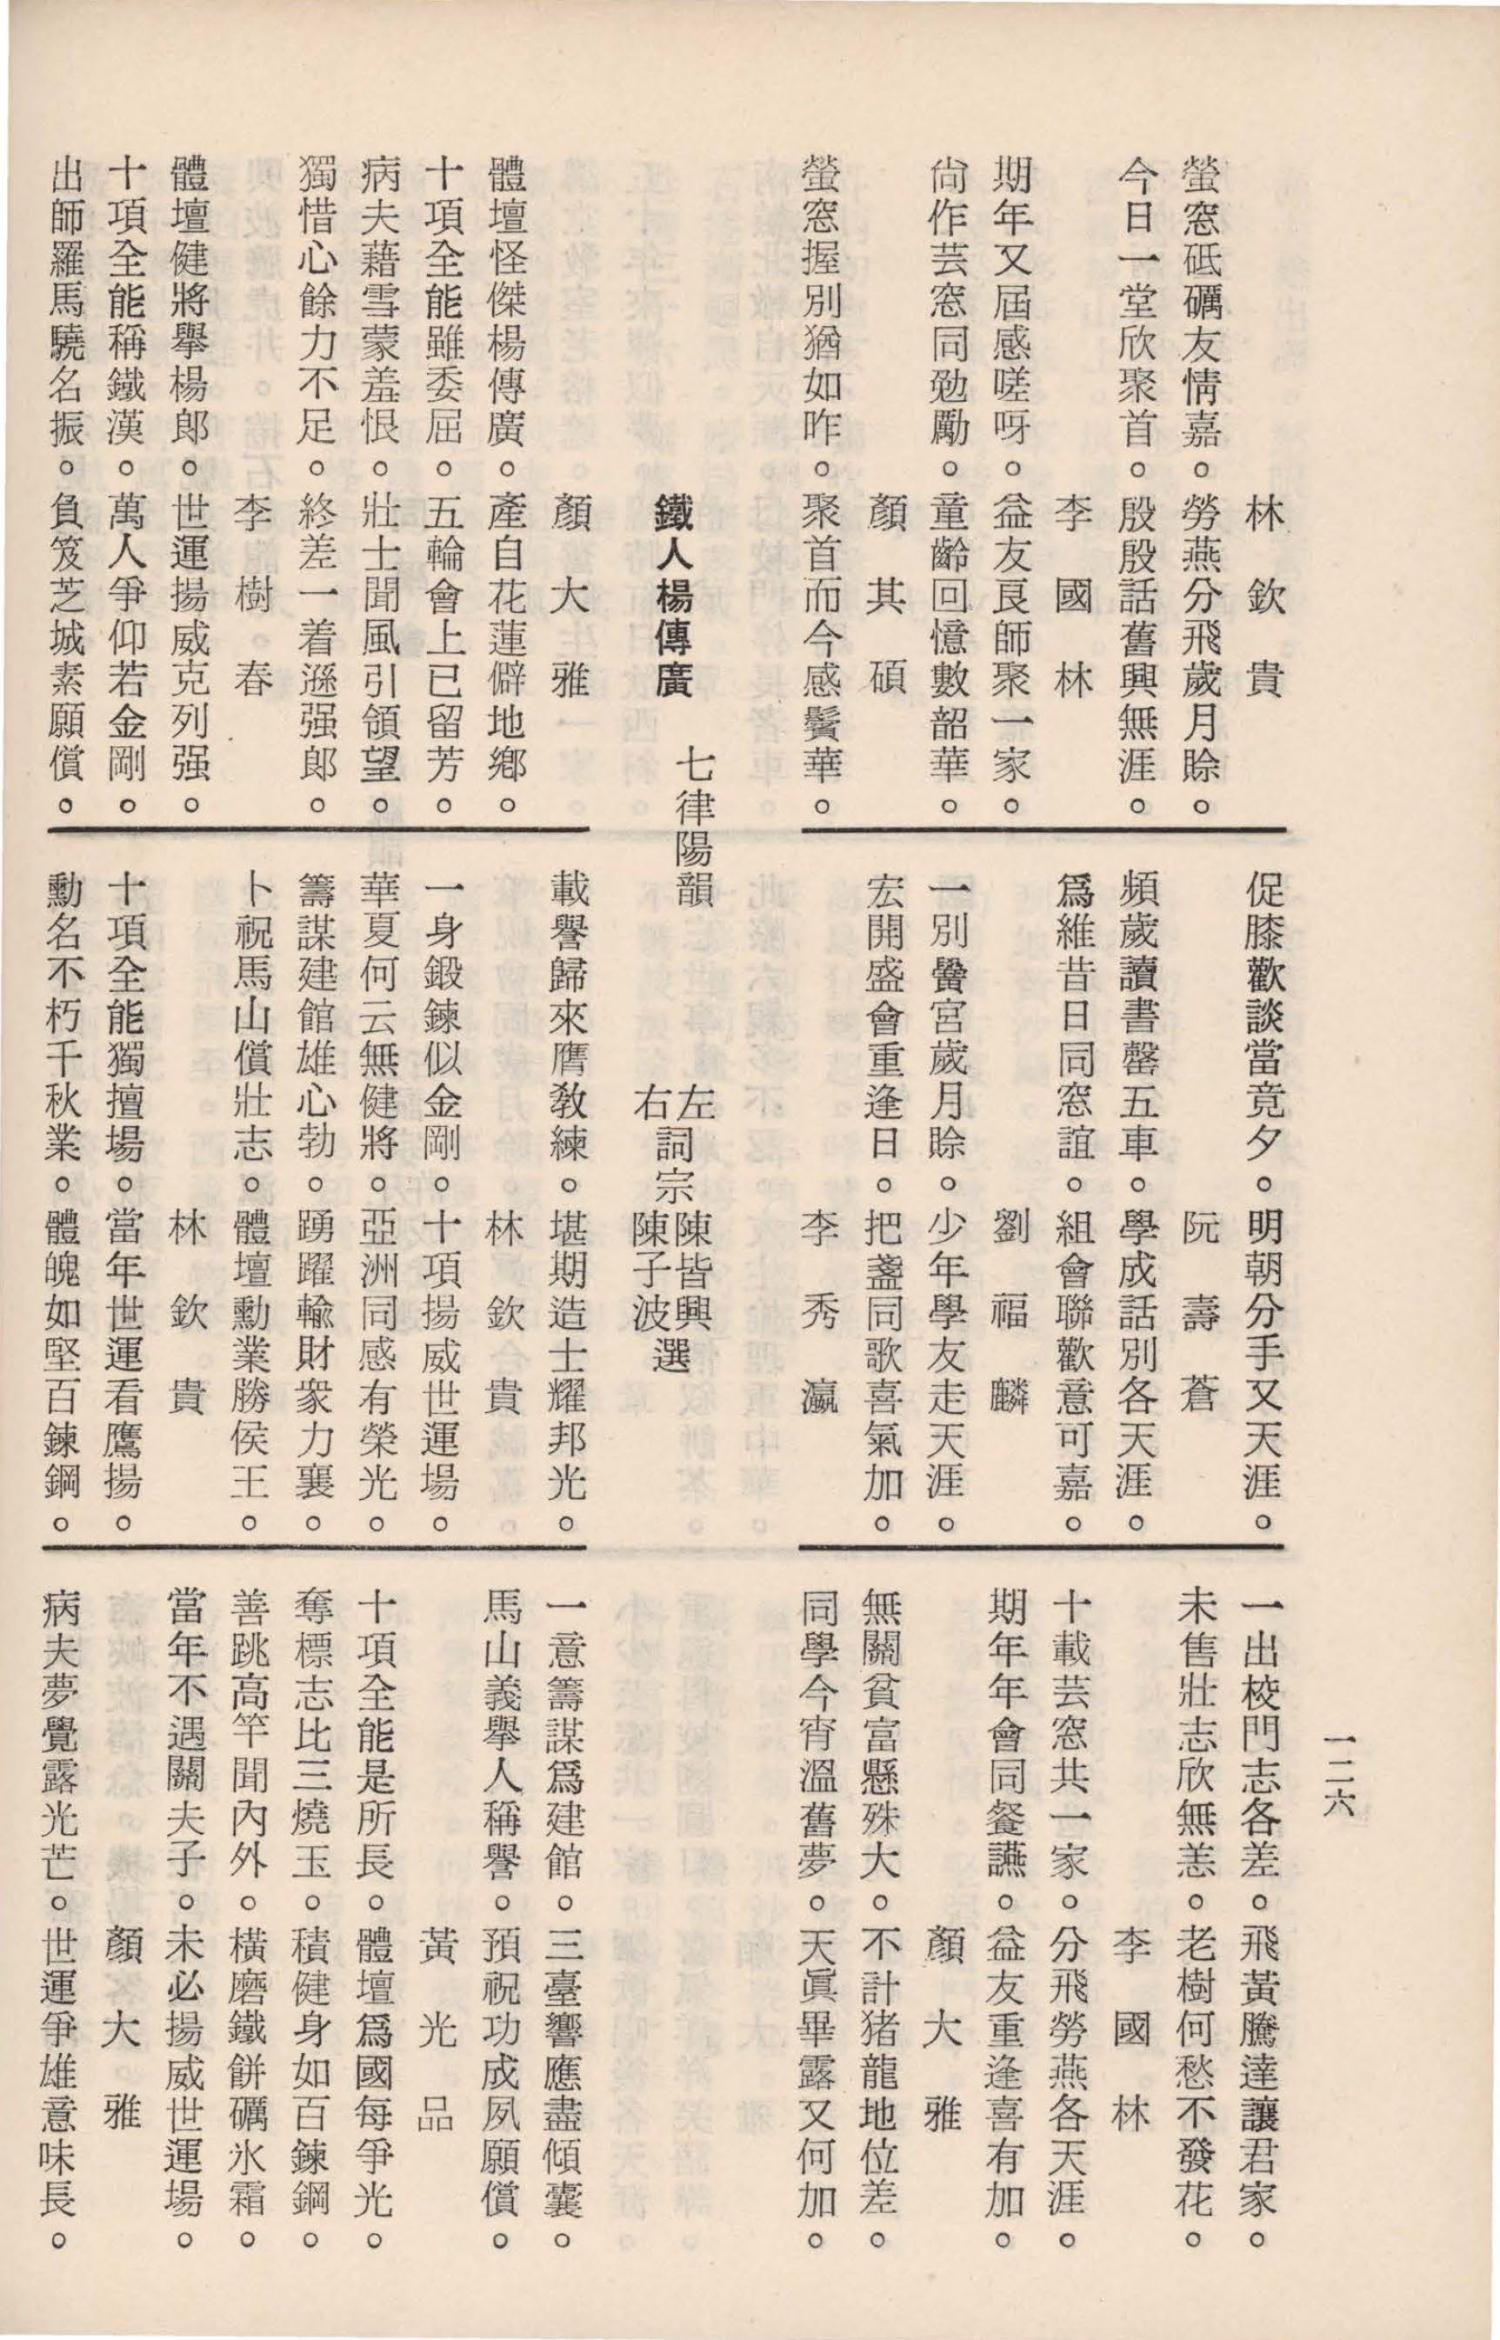 林欽貴
螢窓砥礪友情嘉。勞燕分飛歲月賒。
今日一堂欣聚首。殷殷話舊興無涯。
李國林
期年又屆感嗟呀。益友良師聚一家。
尙作芸窓同勉勵。童齡回憶數韶華。
顏其碩
螢窓握別猶如昨。聚首而今感鬢華。
促膝歡談當竟夕。明朝分手又天涯。
阮壽蒼
頻歲讀書罄五車。學成話別各天涯。
爲維昔日同窓誼。組會聯歡意可嘉。
劉福麟
一別黌宮歲月賒。少年學友走天涯。
宏開盛會重逢日。把盞同歌喜氣加。
李秀瀛
一出校門志各差。飛黃騰達讓君家。
未售壯志欣無恙。老樹何愁不發花。
李國林
十載芸窓共一家。分飛勞燕各天涯。
期年年會同餐讌。益友重逢喜有加。
顏大雅
無關貧富懸殊大。不計猪龍地位差。
同學今宵溫舊夢。天眞畢露又何加。
鐵人楊傳廣 七律陽韻 左詞宗陳皆興
右詞宗陳子波選
顏大雅
體壇怪傑楊傳廣。產自花蓮僻地鄕。
十項全能雖委屈。五輪會上已留芳。
病夫藉雪蒙羞恨。壯士聞風引領望。
獨惜心餘力不足。終差一着遜强郞。
李樹春
體壇健將舉楊郞。世運揚威克列强。
十項全能稱鐵漢。萬人爭仰若金剛。
出師羅馬驍名振。負笈芝城素願償。
載譽歸來膺敎練。堪期造士耀邦光。
林欽貴
一身鍛鍊似金剛。十項揚威世運場。
華夏何云無健將。亞洲同感有榮光。
籌謀建館雄心勃。踴躍輸財衆力襄。
卜祝馬山償壯志。體壇勳業勝侯王。
林欽貴
十項全能獨擅場。當年世運看鷹揚。
勳名不朽千秋業。體魄如堅百鍊鋼。
一意籌謀爲建館。三臺響應盡傾囊。
馬山義舉人稱譽。預祝功成夙願償。
黃光品
十項全能是所長。體壇爲國每爭光。
奪標志比三燒玉。積健身如百鍊鋼。
善跳高竿聞內外。橫磨鐵餅礪氷霜。
當年不遇關夫子。未必揚威世運場。
顏大雅
病夫夢覺露光芒。世運爭雄意味長。
一二六